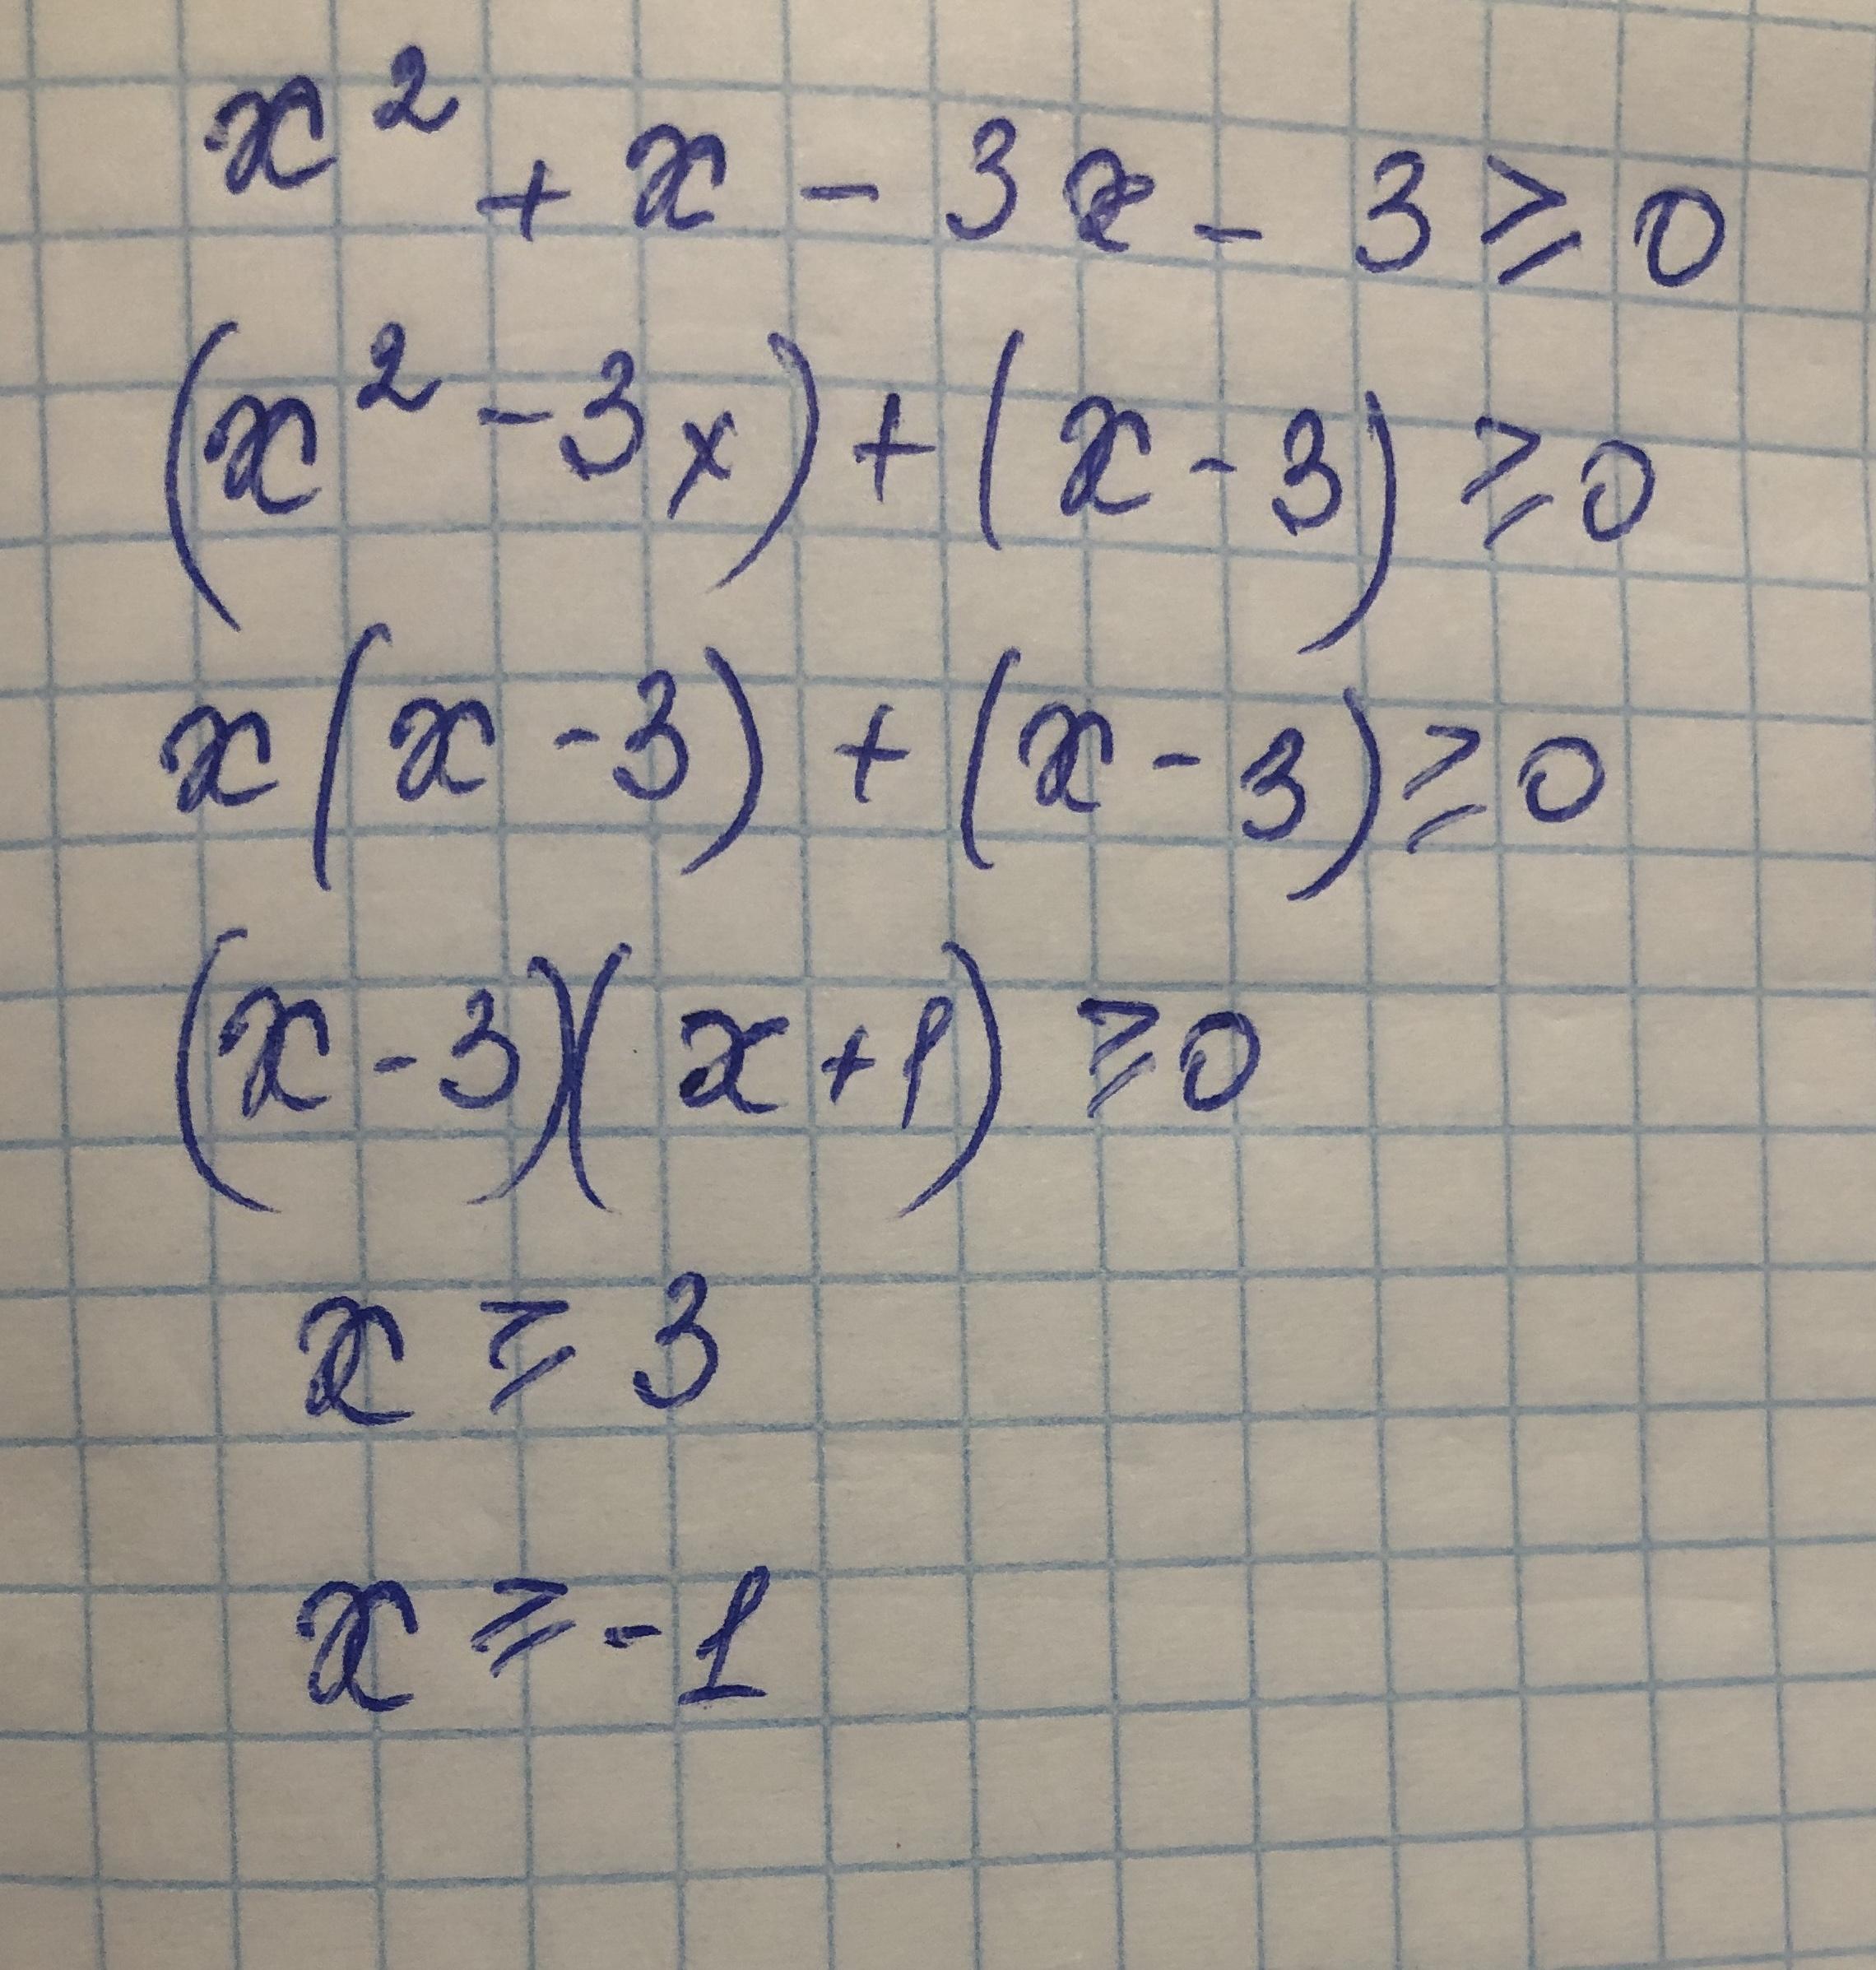 x² + x - 3x - 3 ≥ 0
(x² - 3x) + (x - 3) ≥ 0
x(x - 3) + (x - 3) ≥ 0
(x - 3)(x + 1) ≥ 0
x ≥ 3
x ≥ -1